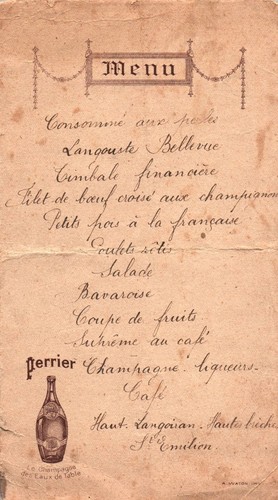 Menu
Consommé aux perles
Langouste Bellevue
Timbale financière
Filet de bœuf croisé aux champignons
Petits pois à la française
Poulets rôtis
Salade
Bavaroise
Coupe de fruits
Suprême au café
Perrier
Champagne - liqueurs -
Café
Le Champagne
des Eaux de Table
Haut Langoiran - Hautes
St Emilion.